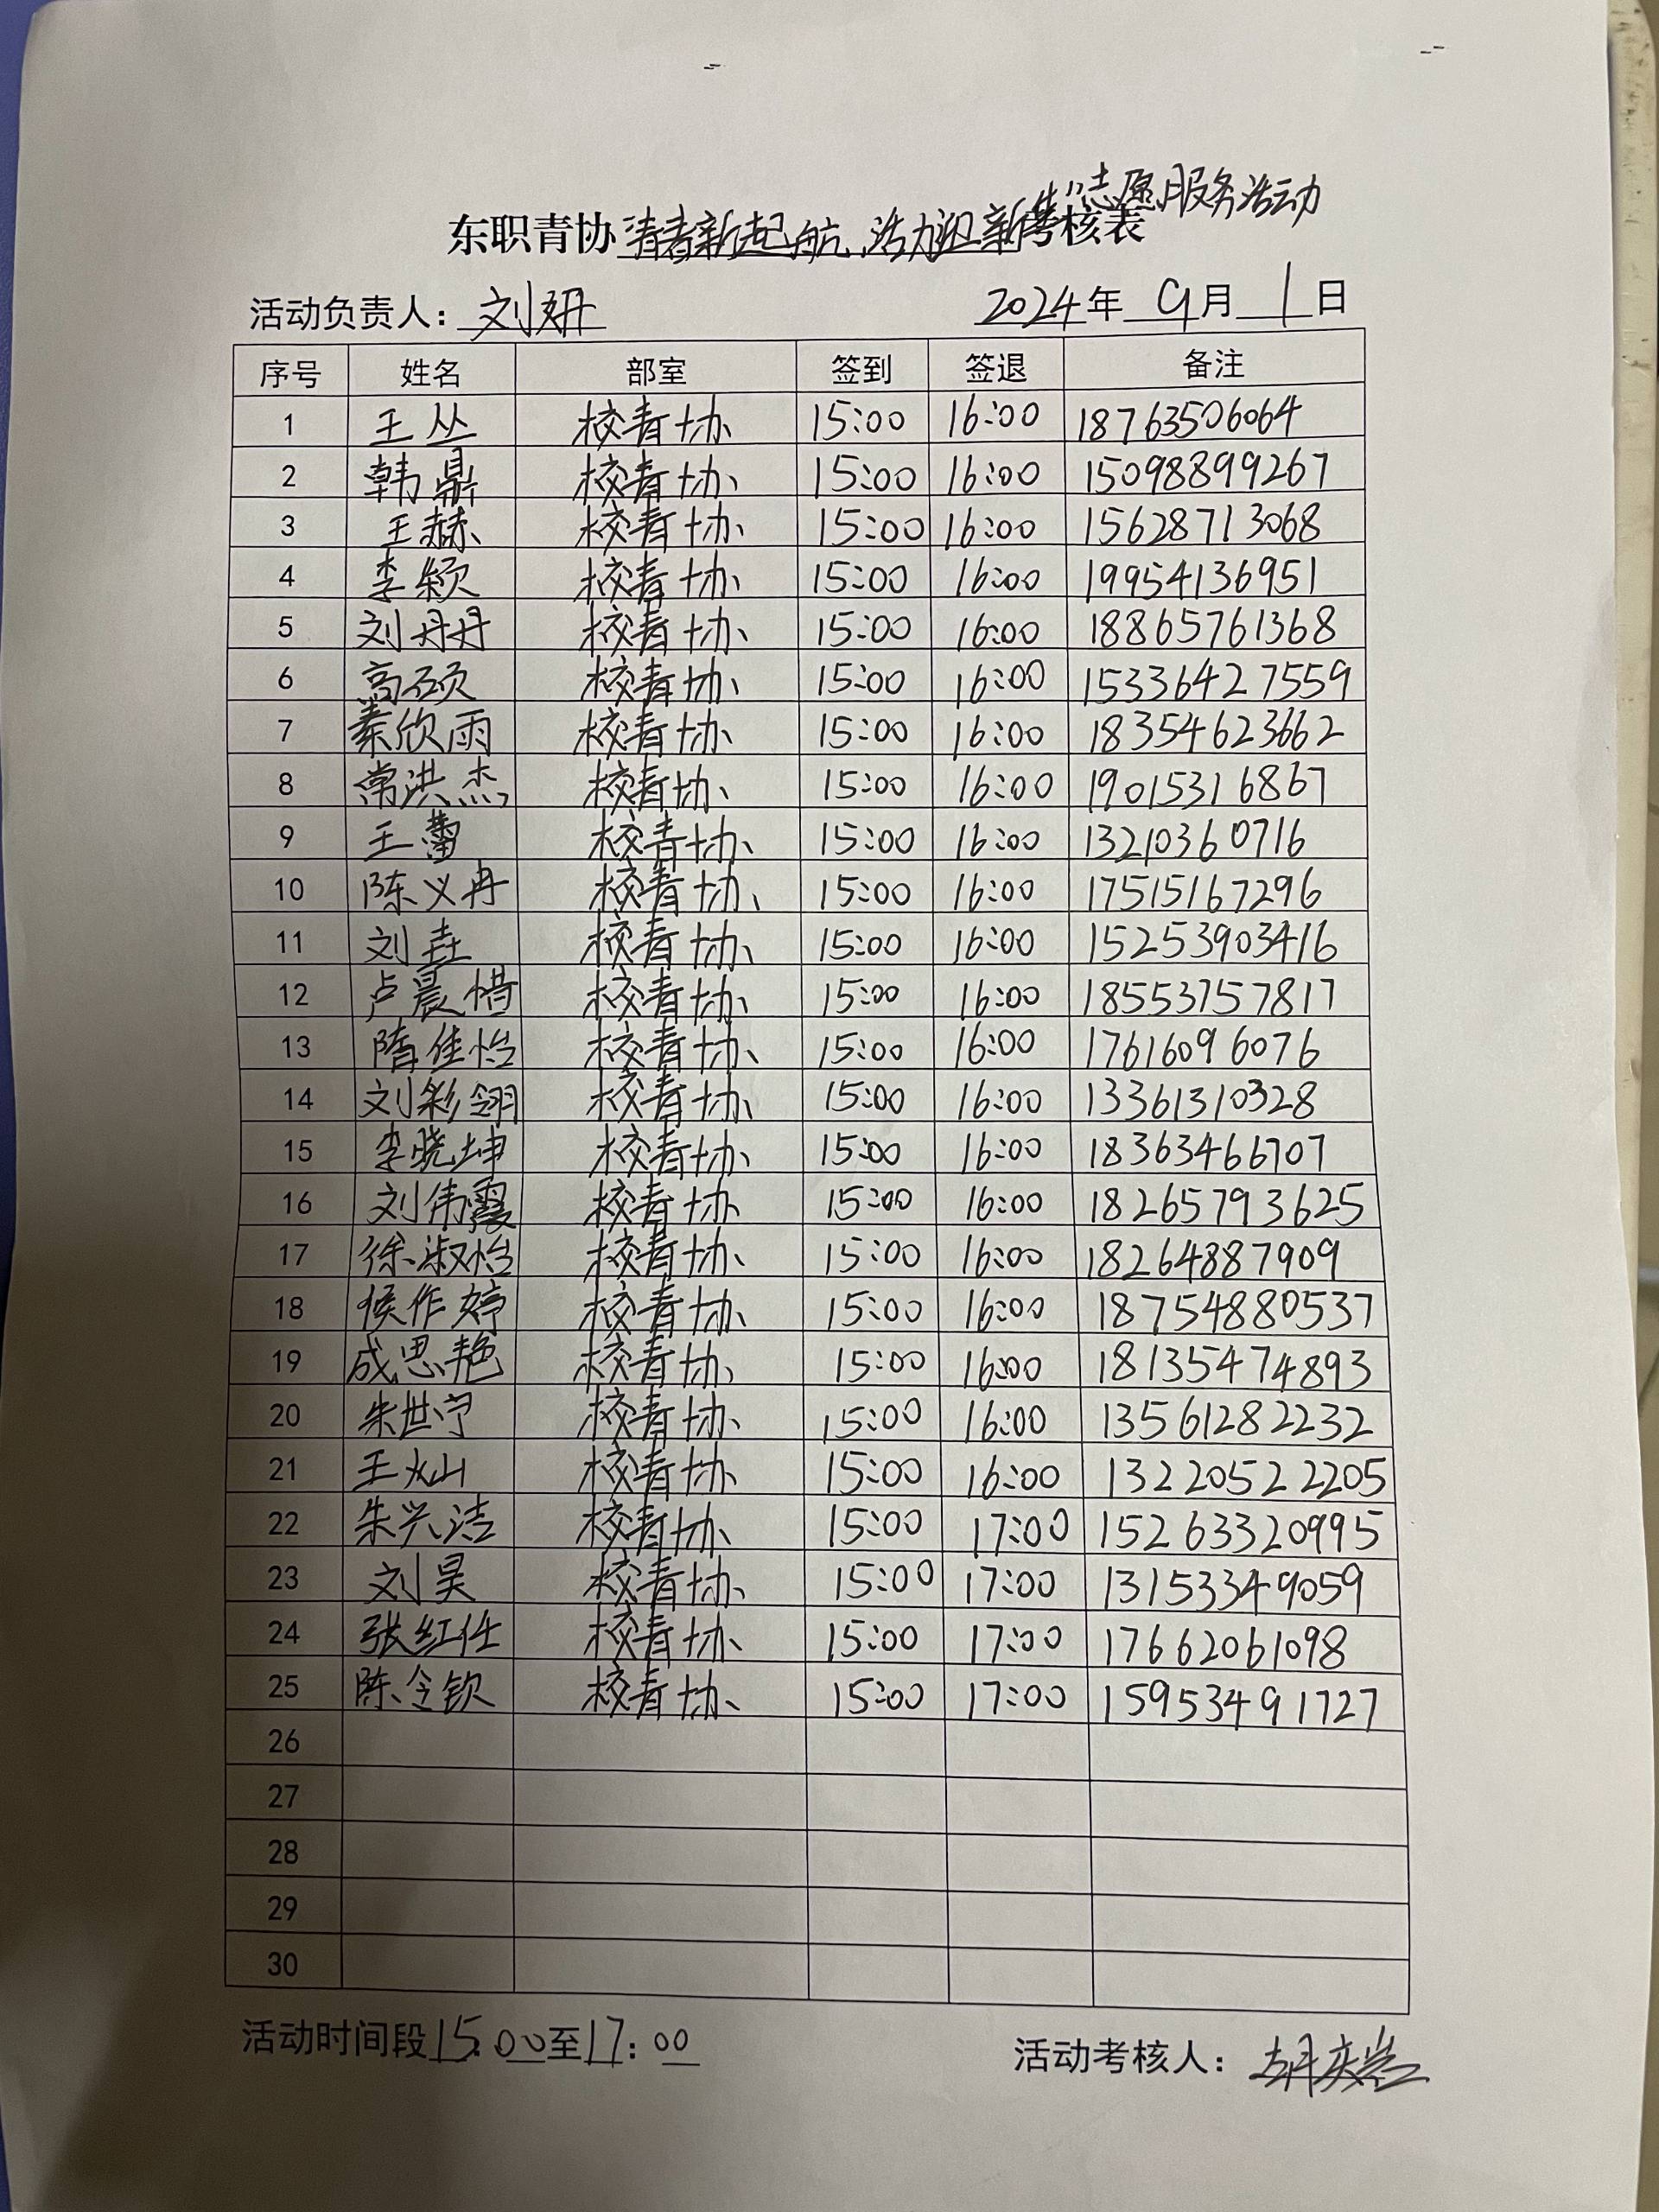 志愿服务活动
东职青协 青春新起航,活力迎新生" 考核表
活动负责人: 刘妍 2024年 9月 1日
序号 姓名 部室 签到 签退 备注
1 王丛 校青协 15:00 16:00 18763506064
2 韩鼎 校青协 15:00 16:00 15098899267
3 王赫 校青协 15:00 16:00 15628713068
4 李颖 校青协 15:00 16:00 19954136951
5 刘丹丹 校青协 15:00 16:00 18865761368
6 高硕 校青协 15:00 16:00 15336427559
7 秦欣雨 校青协 15:00 16:00 18354623662
8 常洪杰 校青协 15:00 16:00 19015316867
9 王蕾 校青协 15:00 16:00 13210360716
10 陈义冉 校青协 15:00 16:00 17515167296
11 刘垚 校青协 15:00 16:00 15253903416
12 卢晨惜 校青协 15:00 16:00 18553757817
13 隋佳怡 校青协 15:00 16:00 17616096076
14 刘彩翎 校青协 15:00 16:00 13361310328
15 李晓坤 校青协 15:00 16:00 18363466707
16 刘伟霞 校青协 15:00 16:00 18265793625
17 徐淑怡 校青协 15:00 16:00 18264887909
18 侯作婷 校青协 15:00 16:00 18754880537
19 成思艳 校青协 15:00 16:00 18135474893
20 朱世宁 校青协 15:00 16:00 13561282232
21 王灿 校青协 15:00 16:00 13220522205
22 朱兴洁 校青协 15:00 17:00 15263320995
23 刘昊 校青协 15:00 17:00 13153349059
24 张红仕 校青协 15:00 17:00 17662061098
25 陈令钦 校青协 15:00 17:00 15953491727
26
27
28
29
30
活动时间段15:00至17:00 活动考核人: 胡庆岩